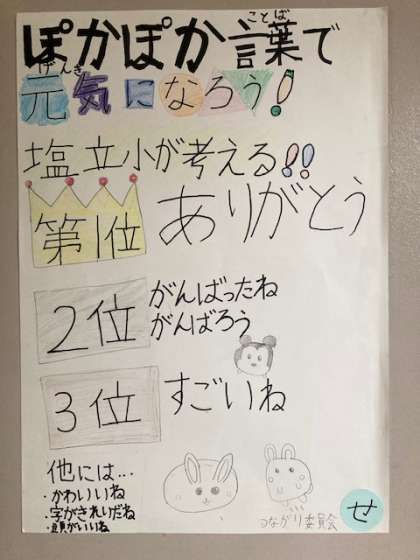 ぽかぽか言葉で
ことば
元気になろう!
げんき
塩立小が考える!!
第1位 ありがとう
2位 がんばったね
がんばろう
3位 すごいね
他には…
・かわいいね
・字がきれいだね
・頭がいいね
つながり委員会
せ